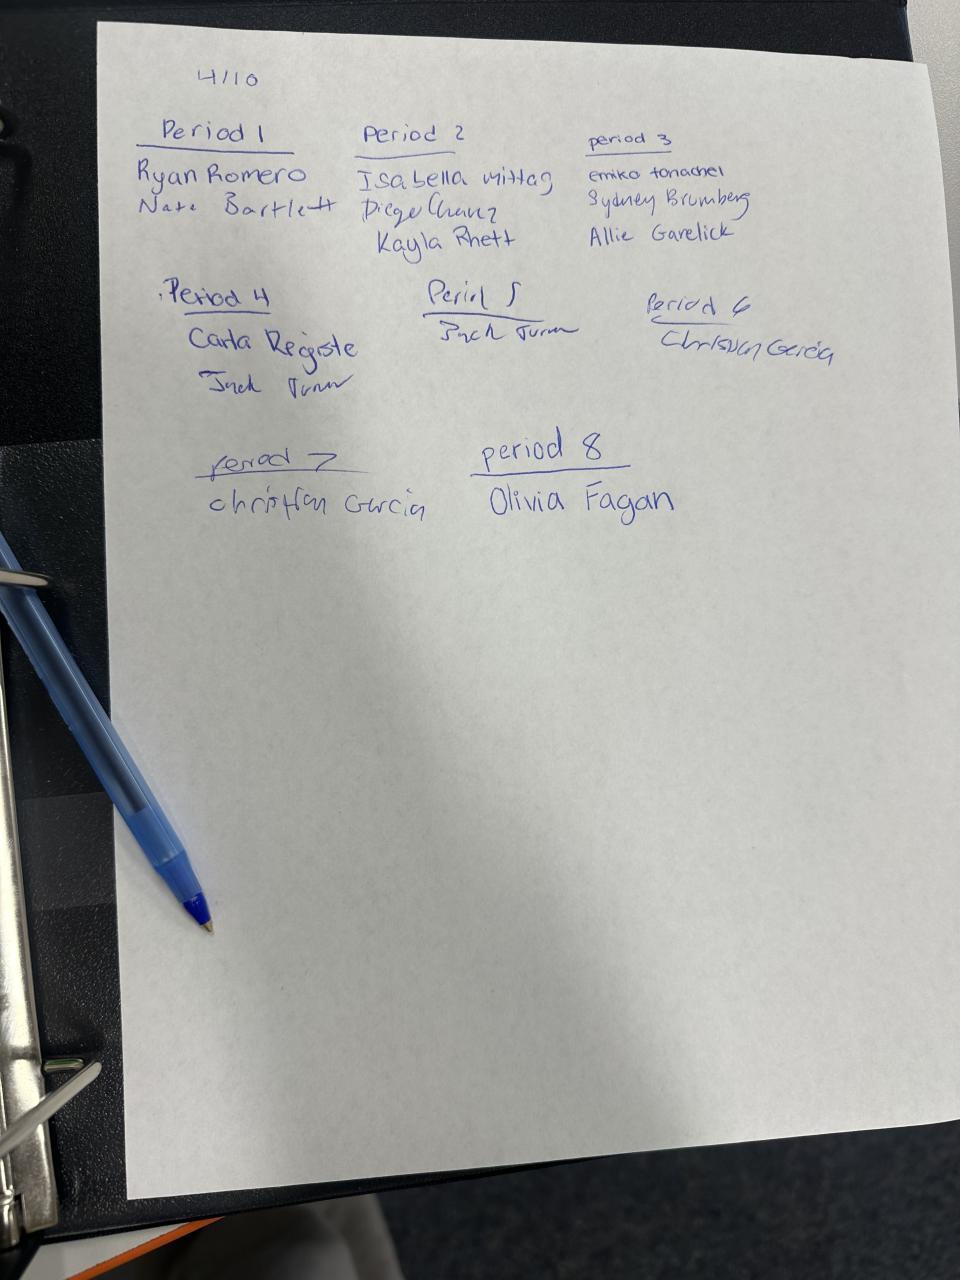 4/10
Period 1
Ryan Romero
Nate Bartlett
Period 2
Isabella Mittag
Diego Chavez
Kayla Rhett
period 3
emiko tonachel
Sydney Brumberg
Allie Garelick
Period 4
Carla Registe
Jack Turner
Period 5
Jack Turner
Period 6
Christian Garcia
period 7
Christian Garcia
period 8
Olivia Fagan